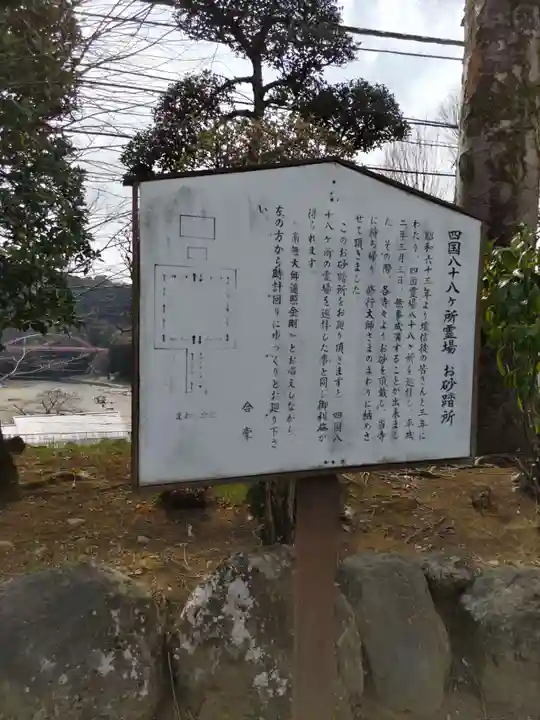 四国八十八ヶ所霊場 お砂踏所
昭和六十三年より壇信徒の皆さんと三年に
わたり、四国霊場八十八ヶ所を巡拝し、平成
二年三月三日、無事成満することが出来まし
た。その際、各寺々よりお砂を頂戴し、当寺
に持ち帰り、修行大師さまのまわりに納めさ
せて頂きました
このお砂踏所をお廻り頂きますと、四国八
十八ヶ所の霊場を巡拝した事と同じ御利益が
得られます
「南無大師遍照金剛」とお唱えしながら、
左の方から時計回りにゆっくりとお廻り下さ
い
合掌